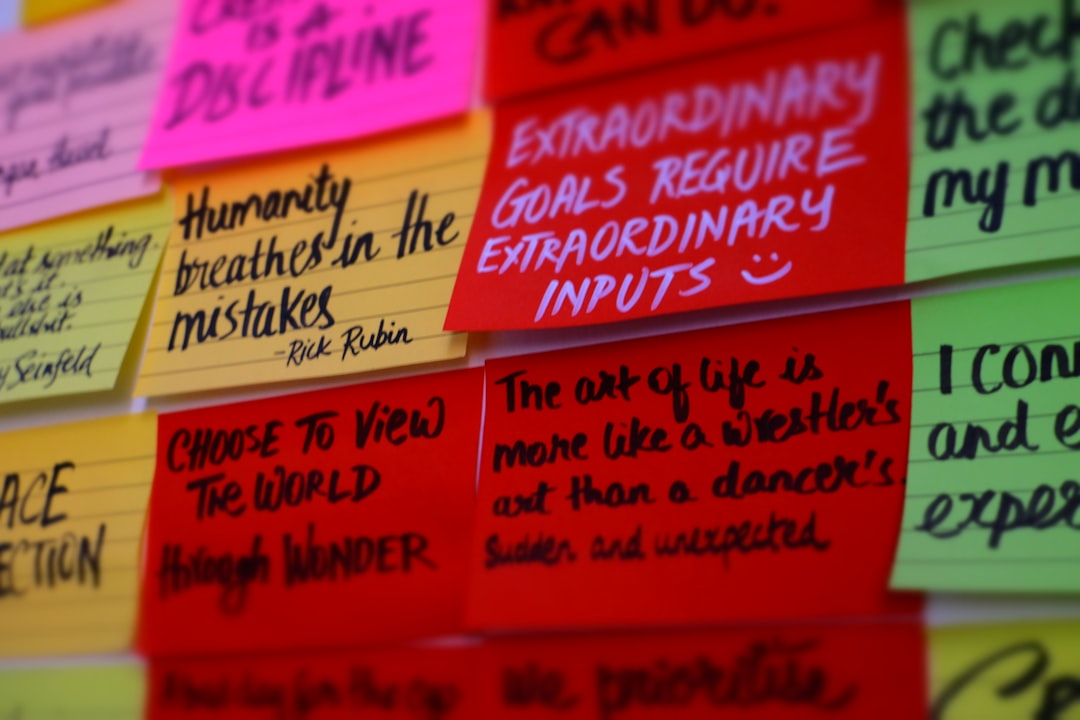 IS A
DISCIPLINE
CAN DO.
EXTRAORDINARY
GOALS REQUIRE
EXTRAORDINARY
INPUTS
Check
the d
my m
Humanity
breathes in the
mistakes
-Rick Rubin
at something.
it.
else is
bullshit.
y Seinfeld
ACE
ECTION
CHOOSE TO VIEW
THE WORLD
through WONDER
The art of life is
more like a wrestler's
art than a dancer's.
Sudden and unexpected
I con
and e
exper
for the
We prioritise